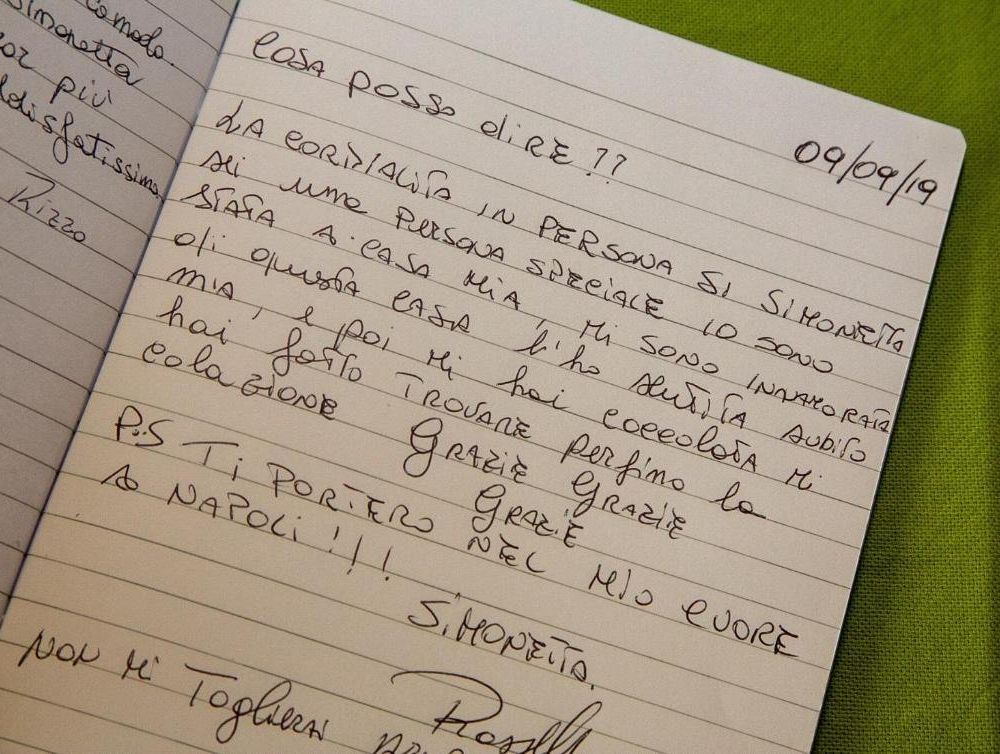 comodo.
Simonetta
più
Rizzo
09/09/19
COSA POSSO diRE ??
LA CORDIALITA IN PERSONA SI SIMONETTA
SEI UNA PERSONA SPECIALE IO SONO
STATA A CASA MIA, MI SONO INNAMORATA
di questa CASA l'ho SENTITA SUBITO
MIA, e poi Mi hai coccolata Mi
hai fatto TROVARE perfino la
colaZIONE GRAZIE GRAZIE
GRAZIE
P.S TI PORTERO NEL MIO CUORE
A NAPOLI!!!
SIMONETTA.
NON Mi Toglierai